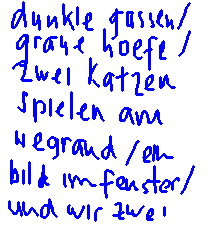 dunkle gassen/
graue hoefe/
zwei katzen
spielen am
wegrand/ein
bild im fenster/
und wir zwei